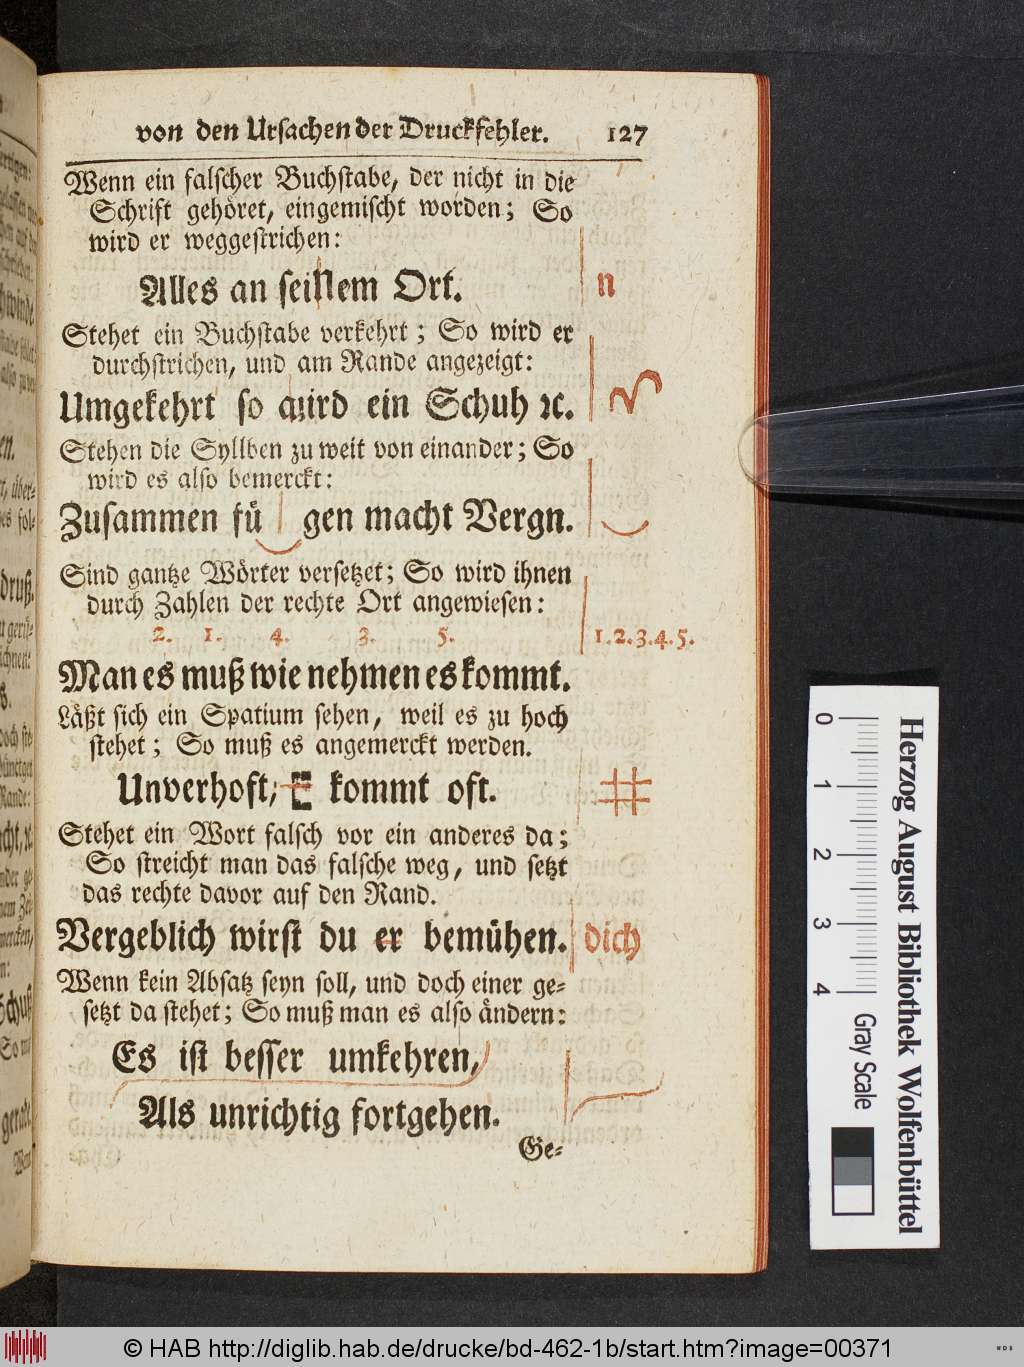 von den Ursachen der Druckfehler. 127
Wenn ein falscher Buchstabe, der nicht in die
Schrift gehöret, eingemischt worden; So
wird er weggestrichen:
Alles an seinem Ort. n
Stehet ein Buchstabe verkehrt; So wird er
durchstrichen, und am Rande angezeigt:
Umgekehrt so wird ein Schuh ꝛc.
Stehen die Syllben zu weit von einander; So
wird es also bemerckt:
Zusammen fü gen macht Vergn.
Sind gantze Wörter versetzet; So wird ihnen
durch Zahlen der rechte Ort angewiesen:
2. 1. 4. 3. 5. 1.2.3.4.5.
Man es muß wie nehmen es kommt.
Läßt sich ein Spatium sehen, weil es zu hoch
stehet; So muß es angemerckt werden.
Unverhoft, kommt oft.
Stehet ein Wort falsch vor ein anderes da;
So streicht man das falsche weg, und setzt
das rechte davor auf den Rand.
Vergeblich wirst du er bemühen. dich
Wenn kein Absatz seyn soll, und doch einer ge-
setzt da stehet; So muß man es also ändern:
Es ist besser umkehren,
Als unrichtig fortgehen.
Ge-
0 1 2 3 4
Herzog August Bibliothek Wolfenbüttel
Gray Scale
© HAB http://diglib.hab.de/drucke/bd-462-1b/start.htm?image=00371